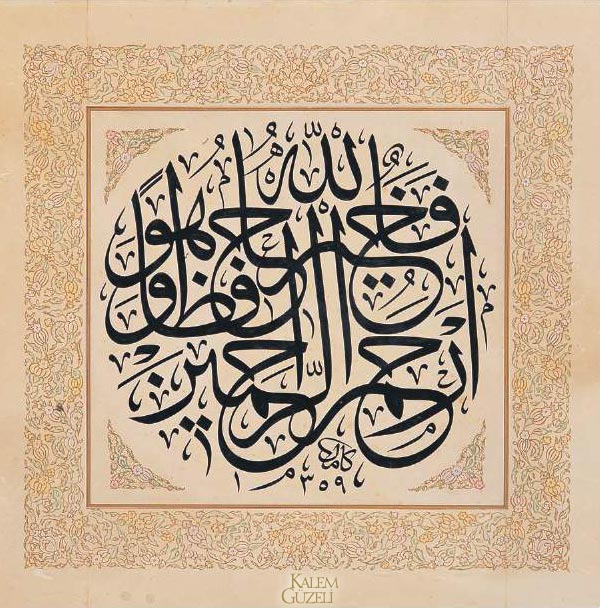 فَاللّٰهُ خَيْرٌ حَافِظًا وَهُوَ اَرْحَمُ الرَّاحِمِينَ
كامل
١٣٥٩
KALEM
GÜZELİ